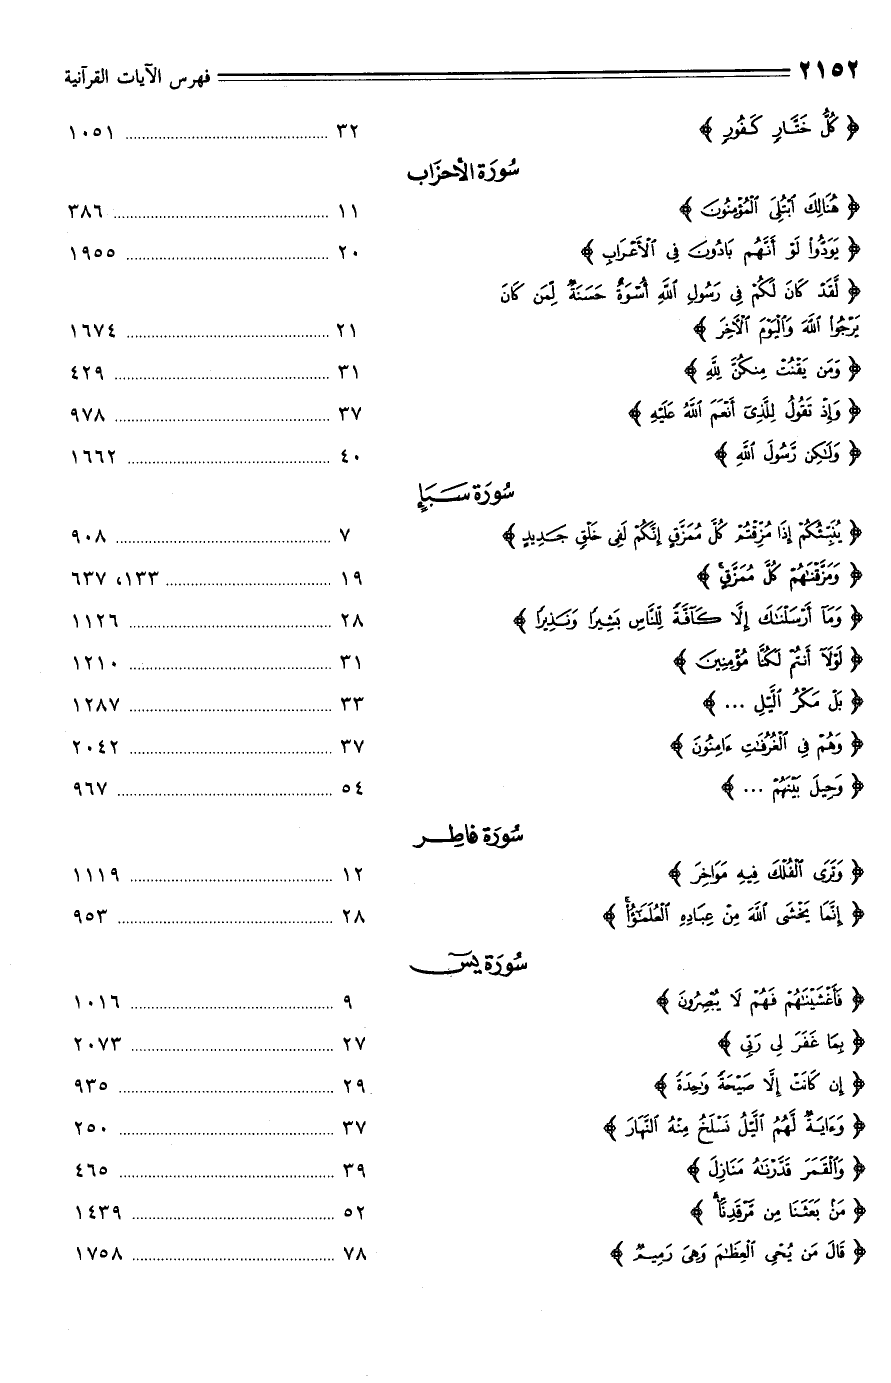 ٢١٥٢ فهرس الآيات القرآنية
﴿ كُلُّ خَتَّارٍ كَفُورٍ ﴾ ٣٢ ........ ١٠٥١
سُورَة الأحزَاب
﴿ هُنَالِكَ ٱبْتُلِىَ ٱلْمُؤْمِنُونَ ﴾ ١١ ........ ٣٨٦
﴿ يَوَدُّوا۟ لَوْ أَنَّهُم بَادُونَ فِى ٱلْأَعْرَابِ ﴾ ٢٠ ........ ١٩٥٥
﴿ لَّقَدْ كَانَ لَكُمْ فِى رَسُولِ ٱللَّهِ أُسْوَةٌ حَسَنَةٌ لِّمَن كَانَ
يَرْجُوا۟ ٱللَّهَ وَٱلْيَوْمَ ٱلْـَٔاخِرَ ﴾ ٢١ ........ ١٦٧٤
﴿ وَمَن يَقْنُتْ مِنكُنَّ لِلَّهِ ﴾ ٣١ ........ ٤٢٩
﴿ وَإِذْ تَقُولُ لِلَّذِىٓ أَنْعَمَ ٱللَّهُ عَلَيْهِ ﴾ ٣٧ ........ ٩٧٨
﴿ وَلَٰكِن رَّسُولَ ٱللَّهِ ﴾ ٤٠ ........ ١٦٦٢
سُورَة سَبَإٍ
﴿ يُنَبِّئُكُمْ إِذَا مُزِّقْتُمْ كُلَّ مُمَزَّقٍ إِنَّكُمْ لَفِى خَلْقٍ جَدِيدٍ ﴾ ٧ ........ ٩٠٨
﴿ وَمَزَّقْنَٰهُمْ كُلَّ مُمَزَّقٍ ۚ ﴾ ١٩ ........ ١٣٣، ٦٣٧
﴿ وَمَآ أَرْسَلْنَٰكَ إِلَّا كَآفَّةً لِّلنَّاسِ بَشِيرًا وَنَذِيرًا ﴾ ٢٨ ........ ١١٢٦
﴿ لَوْلَآ أَنتُمْ لَكُنَّا مُؤْمِنِينَ ﴾ ٣١ ........ ١٢١٠
﴿ بَلْ مَكْرُ ٱلَّيْلِ ... ﴾ ٣٣ ........ ١٢٨٧
﴿ وَهُمْ فِى ٱلْغُرُفَٰتِ ءَامِنُونَ ﴾ ٣٧ ........ ٢٠٤٢
﴿ وَحِيلَ بَيْنَهُمْ ... ﴾ ٥٤ ........ ٩٦٧
سُورَة فاطِر
﴿ وَتَرَى ٱلْفُلْكَ فِيهِ مَوَاخِرَ ﴾ ١٢ ........ ١١١٩
﴿ إِنَّمَا يَخْشَى ٱللَّهَ مِنْ عِبَادِهِ ٱلْعُلَمَٰٓؤُا۟ ۗ ﴾ ٢٨ ........ ٩٥٣
سُورَة يسٓ
﴿ فَأَغْشَيْنَٰهُمْ فَهُمْ لَا يُبْصِرُونَ ﴾ ٩ ........ ١٠١٦
﴿ بِمَا غَفَرَ لِى رَبِّى ﴾ ٢٧ ........ ٢٠٧٣
﴿ إِن كَانَتْ إِلَّا صَيْحَةً وَٰحِدَةً ﴾ ٢٩ ........ ٩٣٥
﴿ وَءَايَةٌ لَّهُمُ ٱلَّيْلُ نَسْلَخُ مِنْهُ ٱلنَّهَارَ ﴾ ٣٧ ........ ٢٥٠
﴿ وَٱلْقَمَرَ قَدَّرْنَٰهُ مَنَازِلَ ﴾ ٣٩ ........ ٤٦٥
﴿ مَنۢ بَعَثَنَا مِن مَّرْقَدِنَا ۜ ﴾ ٥٢ ........ ١٤٣٩
﴿ قَالَ مَن يُحْىِ ٱلْعِظَٰمَ وَهِىَ رَمِيمٌ ﴾ ٧٨ ........ ١٧٥٨